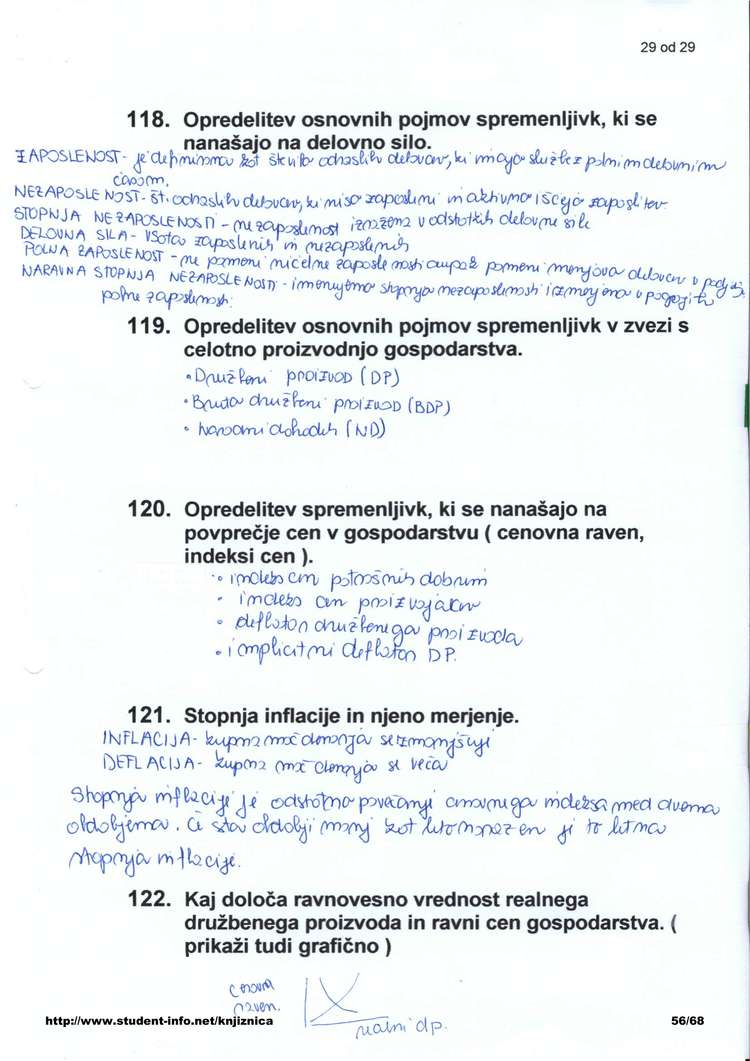 29 od 29
118. Opredelitev osnovnih pojmov spremenljivk, ki se
nanašajo na delovno silo.
ZAPOSLENOST - je definirana kot število odraslih delavcev, ki imajo službe z polnim delovnim
časom.
NEZAPOSLENOST - št. odraslih delavcev, ki niso zaposleni in aktivno iščejo zaposlitev
STOPNJA NEZAPOSLENOSTI - nezaposlenost izražena v odstotkih delovne sile
DELOVNA SILA - vsota zaposlenih in nezaposlenih
POLNA ZAPOSLENOST - ne pomeni ničelne zaposlenosti ampak pomeni menjava delavcev v
NARAVNA STOPNJA NEZAPOSLENOSTI - imenujemo stopnjo nezaposlenosti izmerjeno v pogojih
polne zaposlenosti.
119. Opredelitev osnovnih pojmov spremenljivk v zvezi s
celotno proizvodnjo gospodarstva.
• Družbeni proizvod (DP)
• Bruto družbeni proizvod (BDP)
• Narodni dohodek (ND)
120. Opredelitev spremenljivk, ki se nanašajo na
povprečje cen v gospodarstvu ( cenovna raven,
indeksi cen ).
• indeks cen potrošnih dobrin
• indeks cen proizvajalcev
• deflator družbenega proizvoda
• implicitni deflator DP.
121. Stopnja inflacije in njeno merjenje.
INFLACIJA - kupna moč denarja se zmanjšuje
DEFLACIJA - kupna moč denarja se veča
Stopnja inflacije je odstotno povečanje cenovnega indeksa med dvema
obdobjema. Če sta obdobji manj kot leto narazen je to letna
stopnja inflacije.
122. Kaj določa ravnovesno vrednost realnega
družbenega proizvoda in ravni cen gospodarstva. (
prikaži tudi grafično )
cenovna
raven.
realni dp.
http://www.student-info.net/knjiznica
56/68